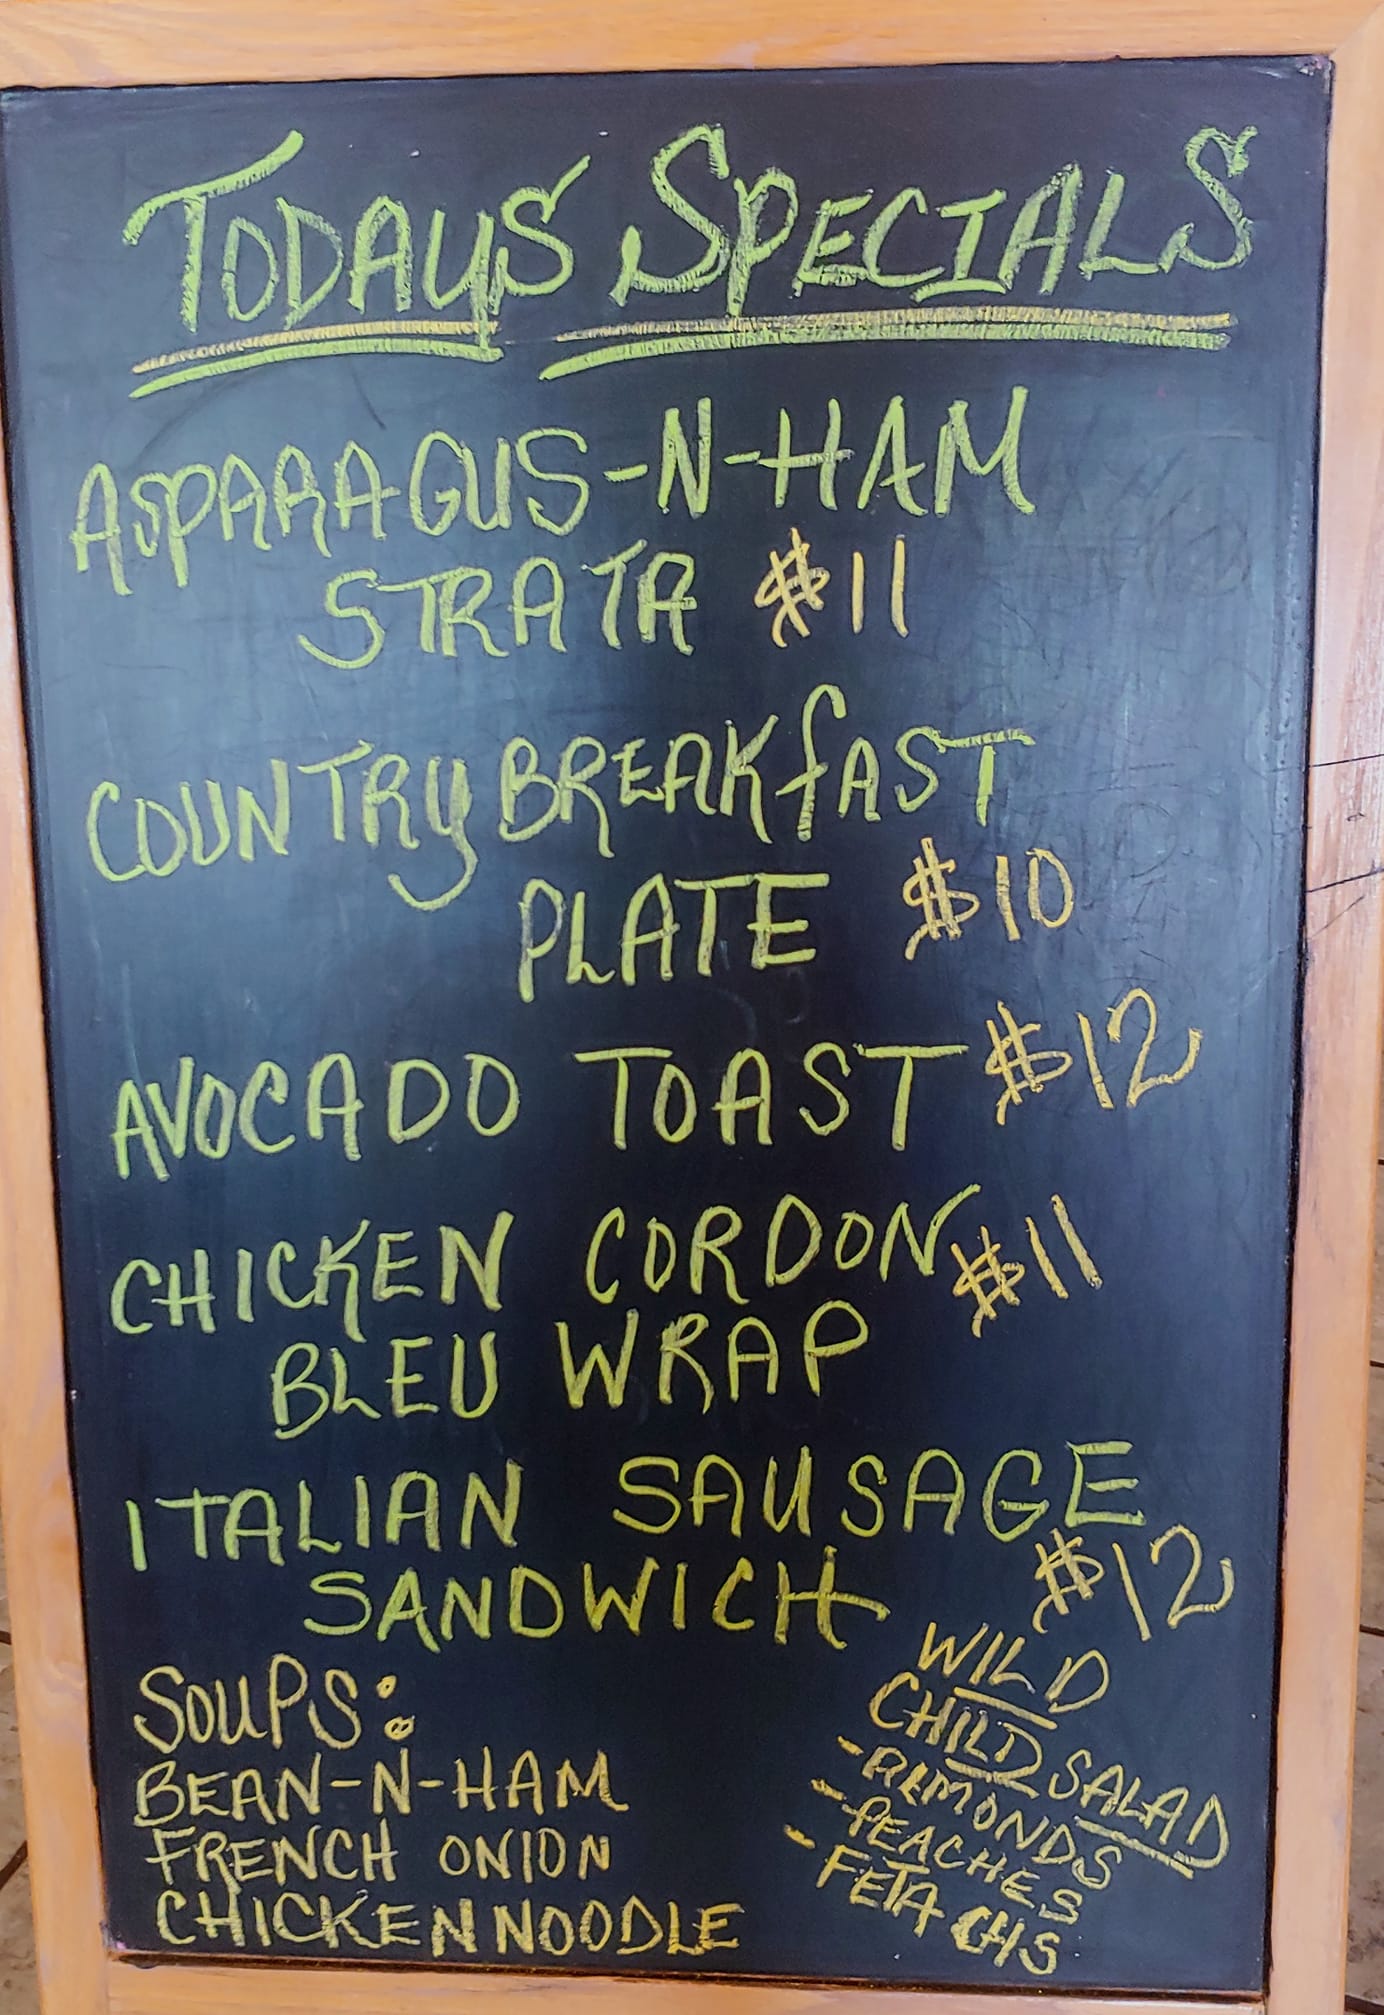 TODAYS SPECIALS
ASPARAGUS-N-HAM
STRATA $11
COUNTRY BREAKFAST
PLATE $10
AVOCADO TOAST $12
CHICKEN CORDON $11
BLEU WRAP
ITALIAN SAUSAGE
SANDWICH $12
SOUPS:
BEAN-N-HAM
FRENCH ONION
CHICKEN NOODLE
WILD
CHILD SALAD
- ALMONDS
- PEACHES
- FETA CHS